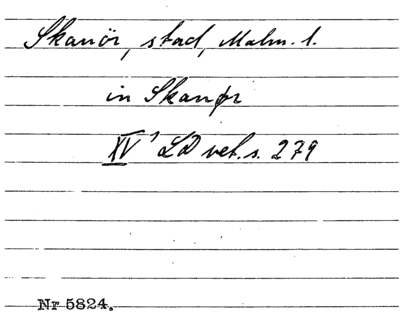 Skanör, stad, Malm. l.
in Skanør
XV¹ LD vet. s. 279
Nr 5824.